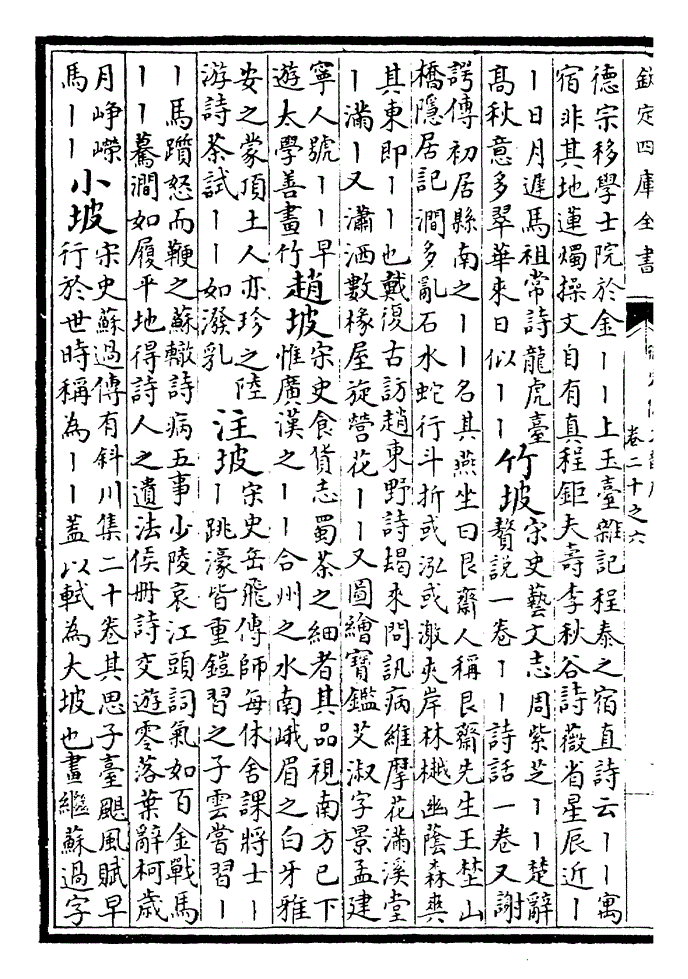 欽定四庫全書
卷二十之六
德宗移學士院於金丨丨上玉臺雜記程泰之宿直詩云丨丨寓
宿非其地蓮燭操文自有真程鉅夫壽李秋谷詩薇省星辰近丨
丨日月遲馬祖常詩龍虎臺
髙秋意多翠華來日似丨丨
竹坡
宋史藝文志周紫芝丨丨楚辭
贅說一卷丨丨詩話一卷又謝
諤傳初居縣南之丨丨名其燕坐曰艮齋人稱艮齋先生王埜山
橋隱居記澗多亂石水蛇行斗折或泓或激夾岸林樾幽蔭森爽
其東即丨丨也戴復古訪趙東野詩朅來問訊病維摩花滿溪堂
丨滿丨又瀟洒數椽屋旋營花丨丨又圖繪寶鑑艾淑字景孟建
寧人號丨丨早
遊太學善畫竹
趙坡
宋史食貨志蜀茶之細者其品視南方已下
惟廣漢之丨丨合州之水南峨眉之白牙雅
安之蒙頂土人亦珍之陸
游詩茶試丨丨如潑乳
注坡
宋史岳飛傳師每休舍課將士丨
丨跳濠皆重鎧習之子雲嘗習丨
丨馬躓怒而鞭之蘇轍詩病五事少陵哀江頭詞氣如百金戰馬
丨丨驀澗如履平地得詩人之遺法侯册詩交遊零落葉辭柯歲
月崢嶸
馬丨丨
小坡
宋史蘇過傳有斜川集二十卷其思子臺颶風賦早
行於世時稱為丨丨蓋以軾為大坡也畫繼蘇過字